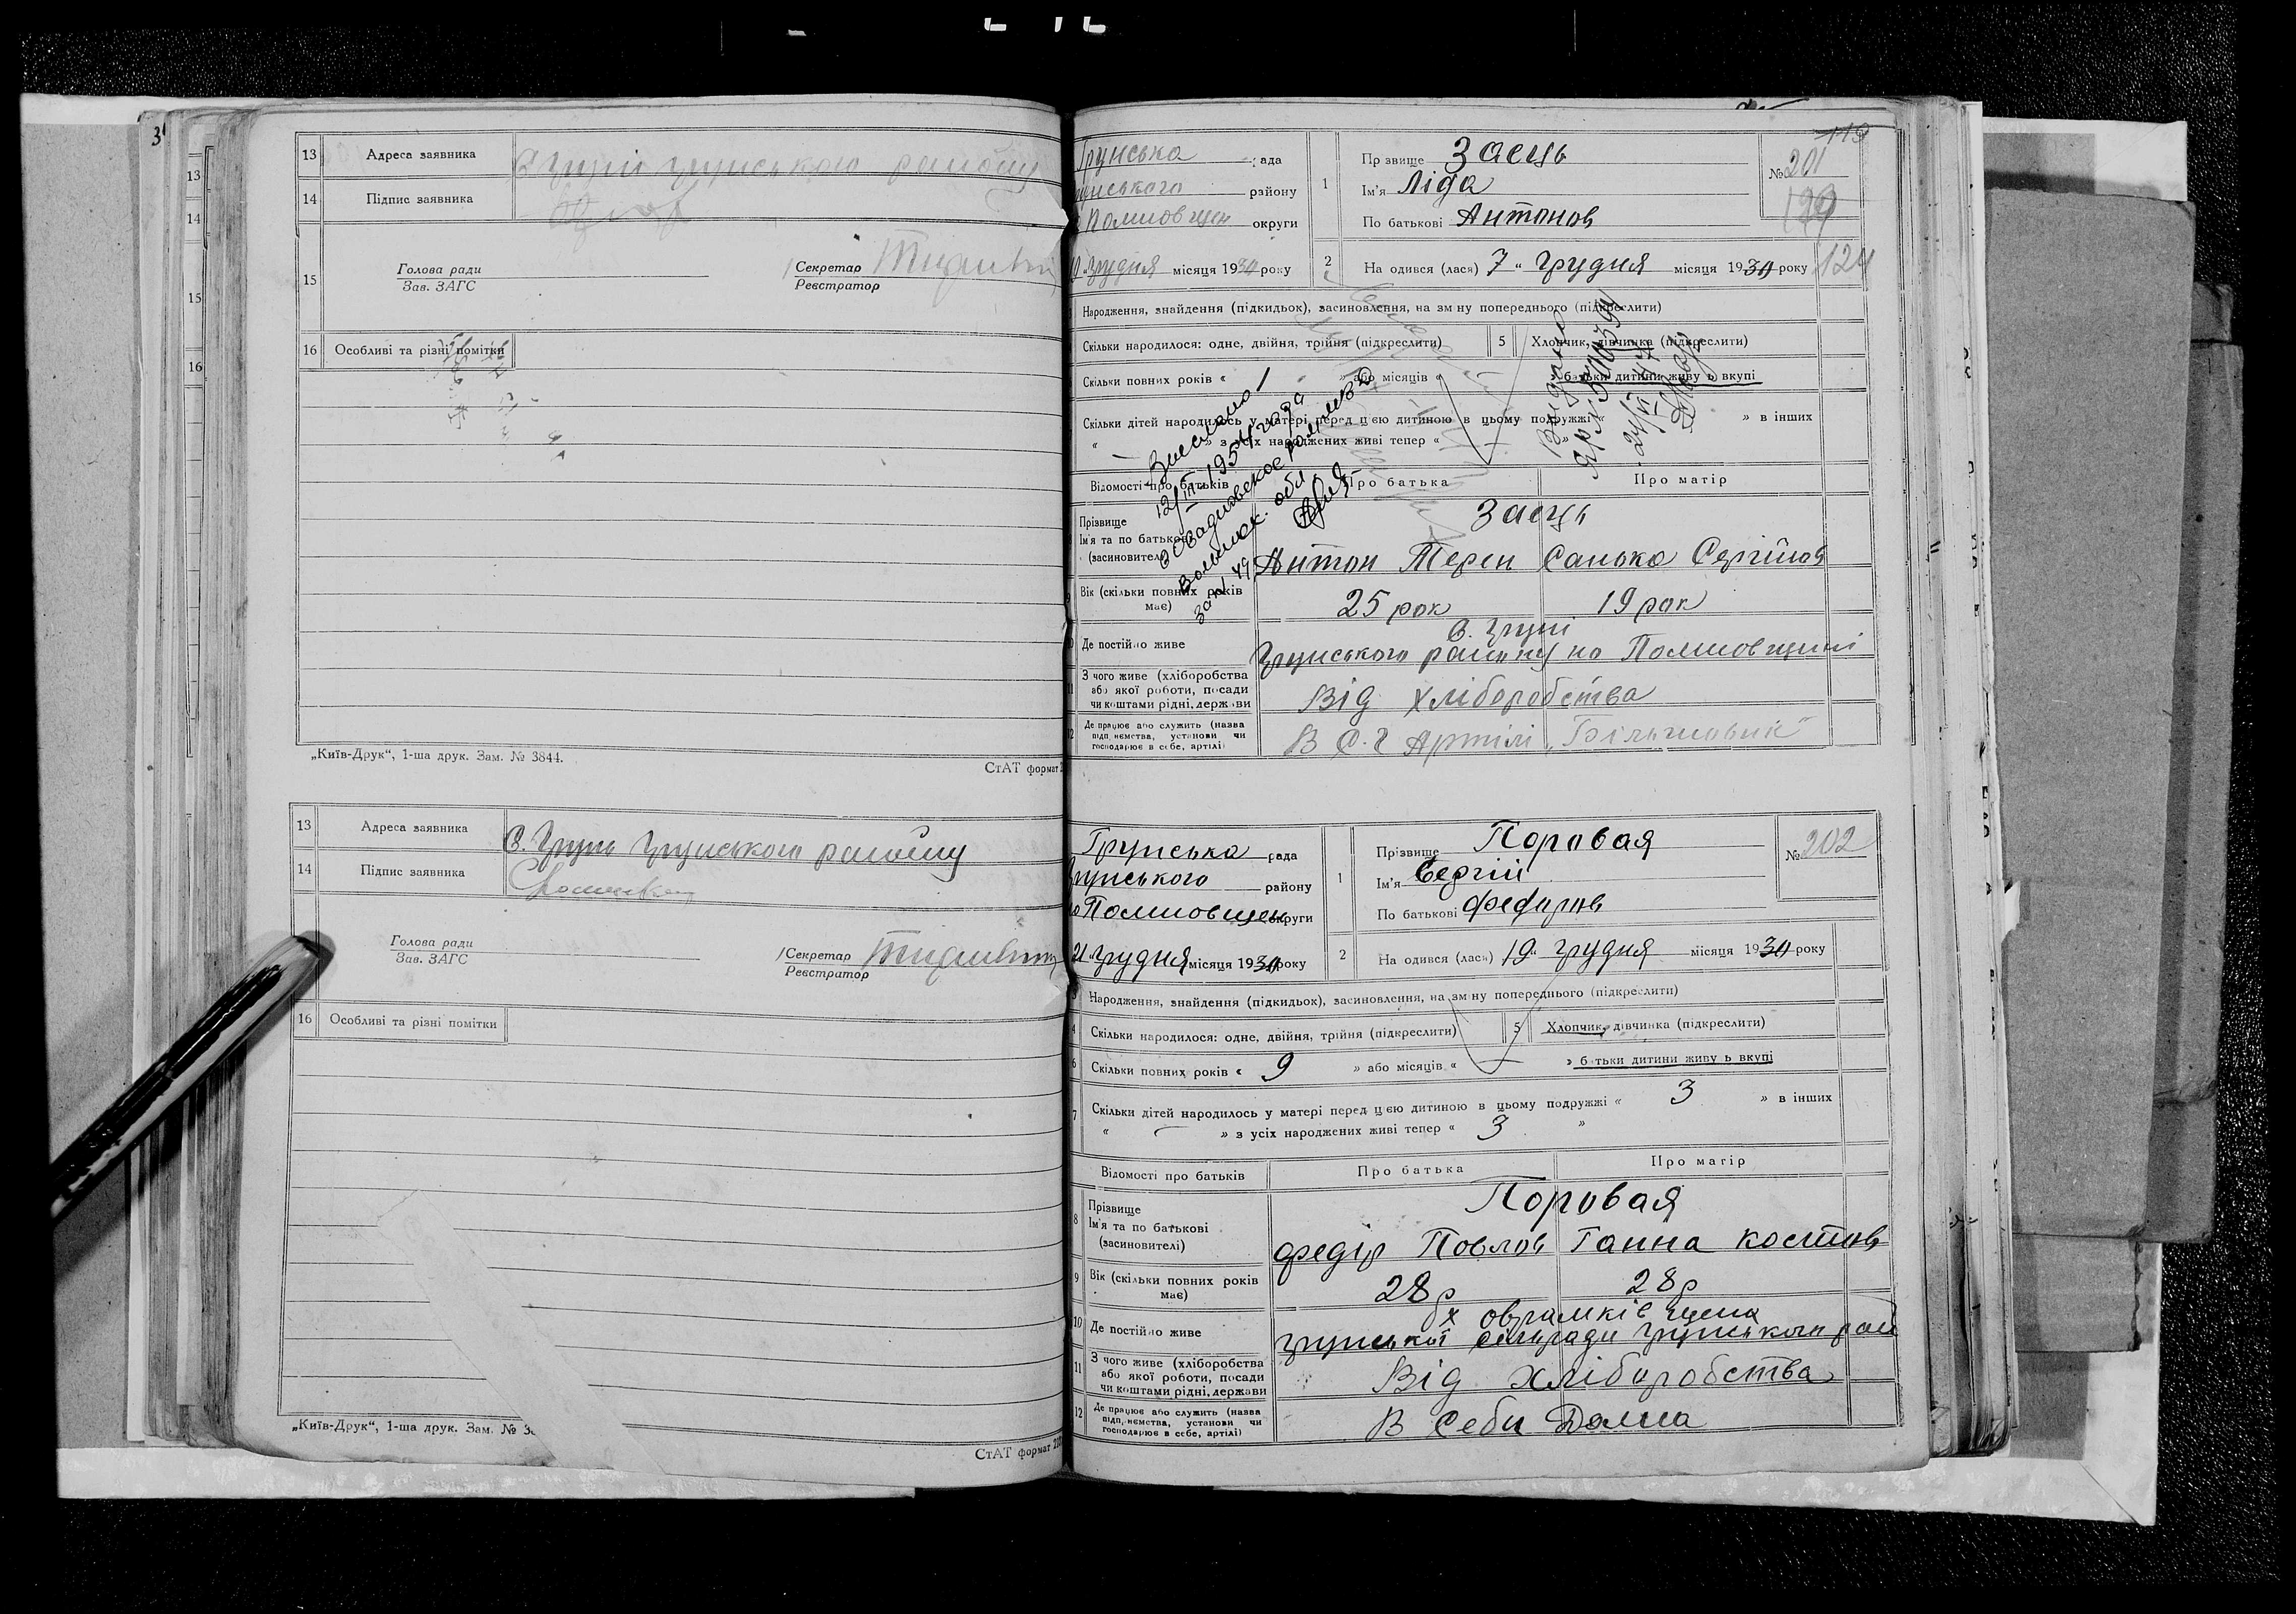 3
13
14
15
16
13 Адреса заявника
14 Підпис заявника
15 Голова ради
Зав. ЗАГС
Секретар
Реєстратор
16 Особливі та різні помітки
„Київ-Друк“, 1-ша друк. Зам. № 3844.
СтАТ формат
13 Адреса заявника С. Грунь Грунського району
14 Підпис заявника
Голова ради
Зав. ЗАГС
Секретар
Реєстратор
16 Особливі та різні помітки
„Київ-Друк“, 1-ша друк. Зам. № 3
СтАТ формат
119
Грунська рада
району
округи
Грудня місяця 1930 року
1 Прізвище Заець
Ім'я Ліда
По батькові Антонов
№ 201
199
2 На одився (лася) 7 „ Грудня місяця 1930 року
124
Народження, знайдення (підкидьок), засиновлення, на зміну попереднього (підкреслити)
Скільки народилося: одне, двійня, трійня (підкреслити) 5 Хлопчик, дівчинка (підкреслити)
Скільки повних років « » або місяців « » батьки дитини живуть вкупі
Скільки дітей народилось у матері перед цією дитиною в цьому подружжі « » в інших
« » з усіх народжених живі тепер « »
Выслано
12/III 1954 года
Волынск. обл.
24/VI 47
Відомості про батьків Про батька Про матір
Прізвище Заець
Ім'я та по батькові
(засновителі) Антон Терен Санька Сергійов
Вік (скільки повних років
має) 25 рок 19 рок
С. Груні
Де постійно живе Грунського району на Полтовщині
З чого живе (хліборобства
або якої роботи, посади
чи коштами рідні, держави Від хліборобства
12 Де працює або служить (назва
підприємства, установи чи
господарює в себе, артілі) В С.Г Артілі „Більшовик“
Грунська рада
Грунського району
Полтовщен округи
21 Грудня місяця 1930 року
1 Прізвище Поровая
Ім'я Сергій
По батькові Федоров
№ 202
2 На одився (лася) 19 „ Грудня місяця 1930 року
3 Народження, знайдення (підкидьок), засиновлення, на зміну попереднього (підкреслити)
4 Скільки народилося: одне, двійня, трійня (підкреслити) 5 Хлопчик, дівчинка (підкреслити)
6 Скільки повних років « 9 » або місяців « » батьки дитини живуть вкупі
7 Скільки дітей народилось у матері перед цією дитиною в цьому подружжі « 3 » в інших
« — » з усіх народжених живі тепер « 3 »
Відомості про батьків Про батька Про матір
8 Прізвище Поровая
Ім'я та по батькові
(засиновителі) Федір Повлов Ганна Костов
9 Вік (скільки повних років
має) 28 р 28 р
10 Де постійно живе
Грунської сільради Грунського рай
11 З чого живе (хліборобства
або якої роботи, посади
чи коштами рідні, держави Від хліборобства
12 Де працює або служить (назва
підприємства, установи чи
господарює в себе, артілі) В Себи Дома